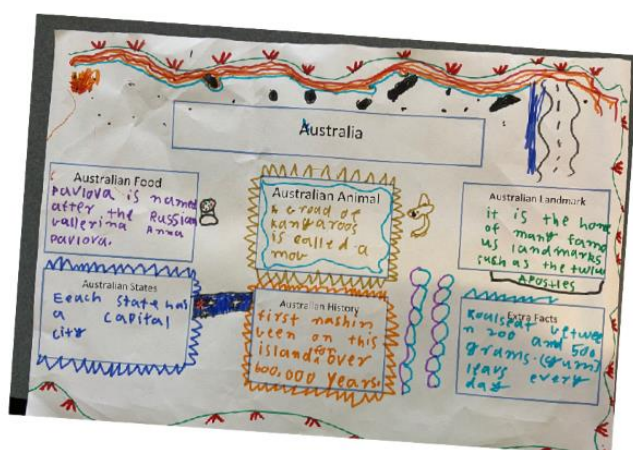 Australia
Australian Food
Pavlova is named
after the Russian
vallerina Anna
pavlova.
Australian Animal
A croad of
kangaroos
is called a
mov
Australian Landmark
it is the home
of many famo
us landmarks
such as the twlve
Apostles
Australian States
Eeach state has
a capital
city
Australian History
First nashin
veen on this
island for over
600,000 years.
Extra Facts
Koalseat vetwee
n 200 and 500
grams.(gum)
leavs every
day